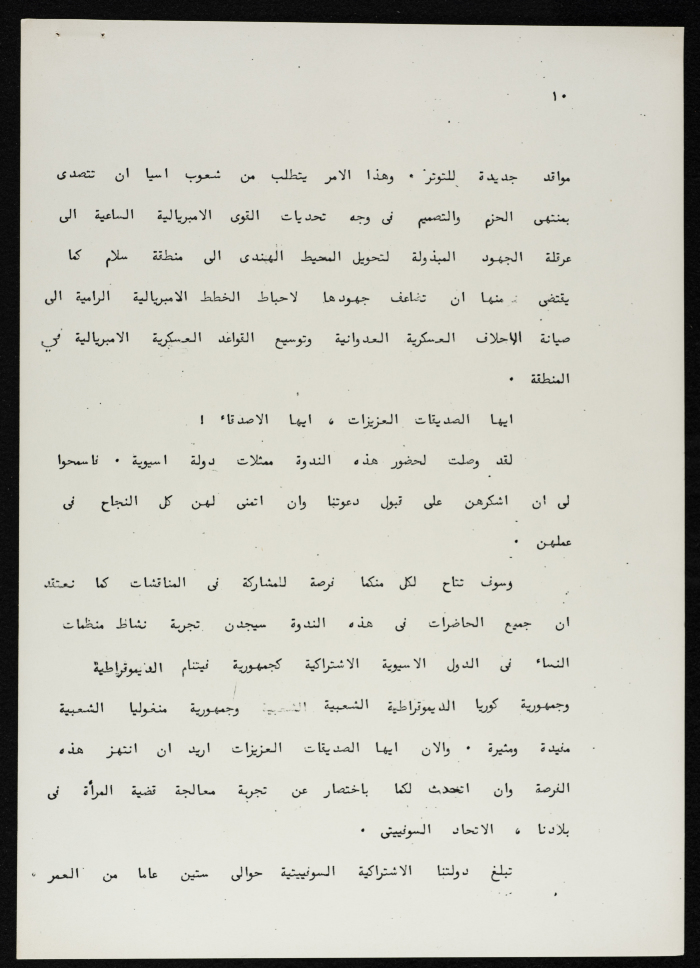 ١٠
مواقد جديدة للتوتر ٠ وهذا الامر يتطلب من شعوب اسيا ان تتصدى
بمنتهى الحزم والتصميم فى وجه تحديات القوى الامبريالية الساعية الى
عرقلة الجهود المبذولة لتحويل المحيط الهندى الى منطقة سلام كما
يقتضى منها ان تضاعف جهودها لاحباط الخطط الامبريالية الرامية الى
صيانة الاحلاف العسكرية العدوانية وتوسيع القواعد العسكرية الامبريالية في
المنطقة ٠
ايها الصديقات العزيزات ، ايها الاصدقاء !
لقد وصلت لحضور هذه الندوة ممثلات دولة اسيوية ٠ فاسمحوا
لى ان اشكرهن على قبول دعوتنا وان اتمنى لهن كل النجاح فى
عملهن ٠
وسوف تتاح لكل منكما فرصة للمشاركة فى المناقشات كما نعتقد
ان جميع الحاضرات فى هذه الندوة سيجدن تجربة نشاط منظمات
النساء فى الدول الاسيوية الاشتراكية كجمهورية فيتنام الديموقراطية
وجمهورية كوريا الديموقراطية الشعبية وجمهورية منغوليا الشعبية
مفيدة ومثيرة ٠ والان ايها الصديقات العزيزات اريد ان انتهز هذه
الفرصة وان اتحدث لكما باختصار عن تجربة معالجة قضية المرأة فى
بلادنا ، الاتحاد السوفييتى ٠
تبلغ دولتنا الاشتراكية السوفييتية حوالى ستين عاما من العمر ٠